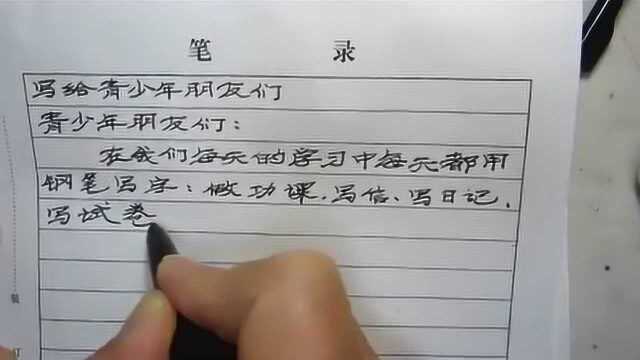 笔 录
写给青少年朋友们
青少年朋友们：
在我们每天的学习中每天都用
钢笔写字：做功课、写信、写日记、
写试卷
装
订